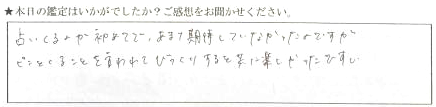 ★本日の鑑定はいかがでしたか?ご感想をお聞かせください。
占いくるのが初めてで、あまり期待していなかったのですが
ピンとくることを言われてびっくりすると共に楽しかったです。